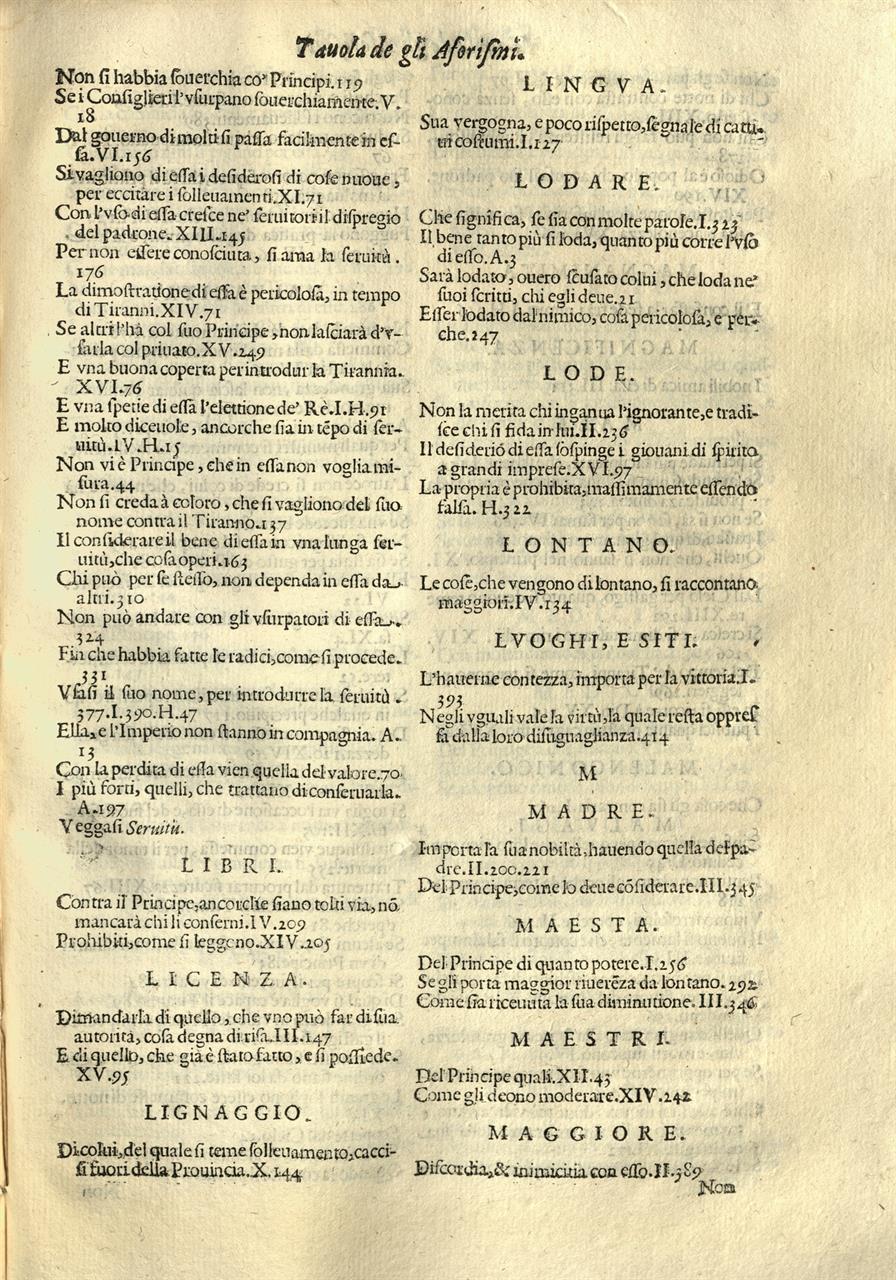 Tauola de gli Aforiſmi.
Non ſi habbia ſouerchia co' Principi.119
Se i Conſiglieri l'vſurpano ſouerchiamente.V.
18
Dal gouerno di molti ſi paſſa facilmente in eſ-
ſa.VI.156
Si vagliono di eſſa i deſideroſi di coſe nuoue,
per eccitare i ſolleuamenti.XI.71
Con l'vſo di eſſa creſce ne' ſeruitori il diſpregio
del padrone.XIII.145
Per non eſſere conoſciuta, ſi ama la ſeruitù.
176
La dimoſtratione di eſſa è pericoloſa, in tempo
di Tiranni.XIV.71
Se altri l'hà col ſuo Principe, non laſciarà d'v-
ſarla col priuato.XV.249
E vna buona coperta per introdur la Tirannia.
XVI.76
E vna ſpetie di eſſa l'elettione de' Rè.I.H.91
E molto diceuole, ancorche ſia in tẽpo di ſer-
uitù.IV.H.15
Non vi è Principe, che in eſſa non voglia mi-
ſura.44
Non ſi creda à coloro, che ſi vagliono del ſuo
nome contra il Tiranno.137
Il conſiderare il bene di eſſa in vna lunga ſer-
uitù,che coſa operi.163
Chi può per ſe ſteſſo, non dependa in eſſa da
altri.310
Non può andare con gli vſurpatori di eſſa.
324
Fin che habbia fatte le radici,come ſi procede.
331
Vſaſi il ſuo nome, per introdurre la ſeruitù.
377.I.390.H.47
Ella, e l'Imperio non ſtanno in compagnia. A.
13
Con la perdita di eſſa vien quella del valore.70
I più forti, quelli, che trattano di conſeruarla.
A.197
Veggaſi Seruitù.
LIBRI.
Contra il Principe,ancorche ſiano tolti via, nõ
mancarà chi li conſerni.IV.209
Prohibiti,come ſi leggono.XIV.205
LICENZA.
Dimandarla di quello, che vno può far di ſua
autorità, coſa degna di riſa.III.147
E di quello, che già è ſtato fatto, e ſi poſſiede.
XV.95
LIGNAGGIO.
Di colui, del quale ſi teme ſolleuamento,cacci-
ſi fuori della Prouincia.X.144
LINGVA.
Sua vergogna, e poco riſpetto,ſegnale di catti-
ui coſtumi.I.127
LODARE.
Che ſignifica, ſe ſia con molte parole.I.323
Il bene tanto più ſi loda, quanto più corre l'vſo
di eſſo.A.3
Sarà lodato, ouero ſcuſato colui, che loda ne'
ſuoi ſcritti, chi egli deue.21
Eſſer lodato dal nimico, coſa pericoloſa, e per-
che.247
LODE.
Non la merita chi inganna l'ignorante,e tradi-
ſce chi ſi fida in lui.II.236
Il deſiderio di eſſa ſoſpinge i giouani di ſpirito
a grandi impreſe.XVI.97
La propria è prohibita,maſſimamente eſſendo
falſa. H.322
LONTANO.
Le coſe,che vengono di lontano, ſi raccontano
maggiori.IV.134
LVOGHI, E SITI.
L'hauerne contezza, importa per la vittoria.I.
393
Negli vguali vale la virtù, la quale reſta oppreſ
ſa dalla loro diſuguaglianza.414
M
MADRE.
Importa la ſua nobiltà,hauendo quella del pa-
dre.II.200.221
Del Principe,come lo deue cõſiderare.III.345
MAESTA.
Del Principe di quanto potere.I.256
Se gli porta maggior riuerẽza da lontano.292
Come ſia riceuuta la ſua diminutione. III.346
MAESTRI.
Del Principe quali.XII.43
Come gli deono moderare.XIV.242
MAGGIORE.
Diſcordia,& inimicitia con eſſo.II.389
Non